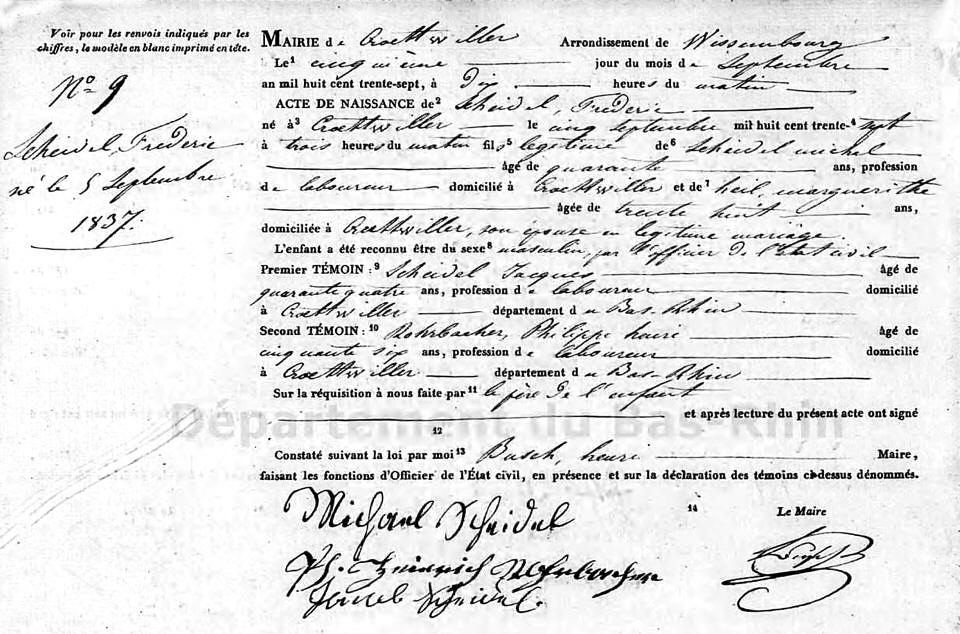 Voir pour les renvois indiqués par les
chiffres, le modèle en blanc imprimé en tête.
N° 9
Scheidel, Frederic
né le 5 Septembre
1837.
MAIRIE de Croettwiller Arrondissement de Wissembourg
Le¹ cinquième jour du mois de Septembre
an mil huit cent trente-sept, à Dix heures du matin
ACTE DE NAISSANCE de² Scheidel, Frederic
né à³ Croettwiller le cinq septembre mil huit cent trente-⁴ sept
à trois heures du matin fils⁵ legitime de⁶ Scheidel michel
âgé de quarante ans, profession
de laboureur domicilié à Croettwiller et de⁷ heil, marguerithe
âgée de trente huit ans,
domiciliée à Croettwiller, son épouse en legitime mariage
L'enfant a été reconnu être du sexe⁸ masculin, par l'officier de l'etat civil
Premier TÉMOIN :⁹ Scheidel Jacques âgé de
quarante quatre ans, profession de laboureur domicilié
à Croettwiller département du Bas-Rhin
Second TÉMOIN :¹⁰ Rohrbacher, Philippe henri âgé de
cinquante six ans, profession de laboureur domicilié
à Croettwiller département du Bas-Rhin
Sur la réquisition à nous faite par¹¹ le père de l'enfant
et après lecture du présent acte ont signé
Département du Bas-Rhin
12
Constaté suivant la loi par moi¹³ Busch, henri Maire,
faisant les fonctions d'Officier de l'État civil, en présence et sur la déclaration des témoins ci-dessus dénommés.
14 Le Maire
Michael Scheidel
Ph. Heinrich Rohrbacher
Jacob Scheidel.